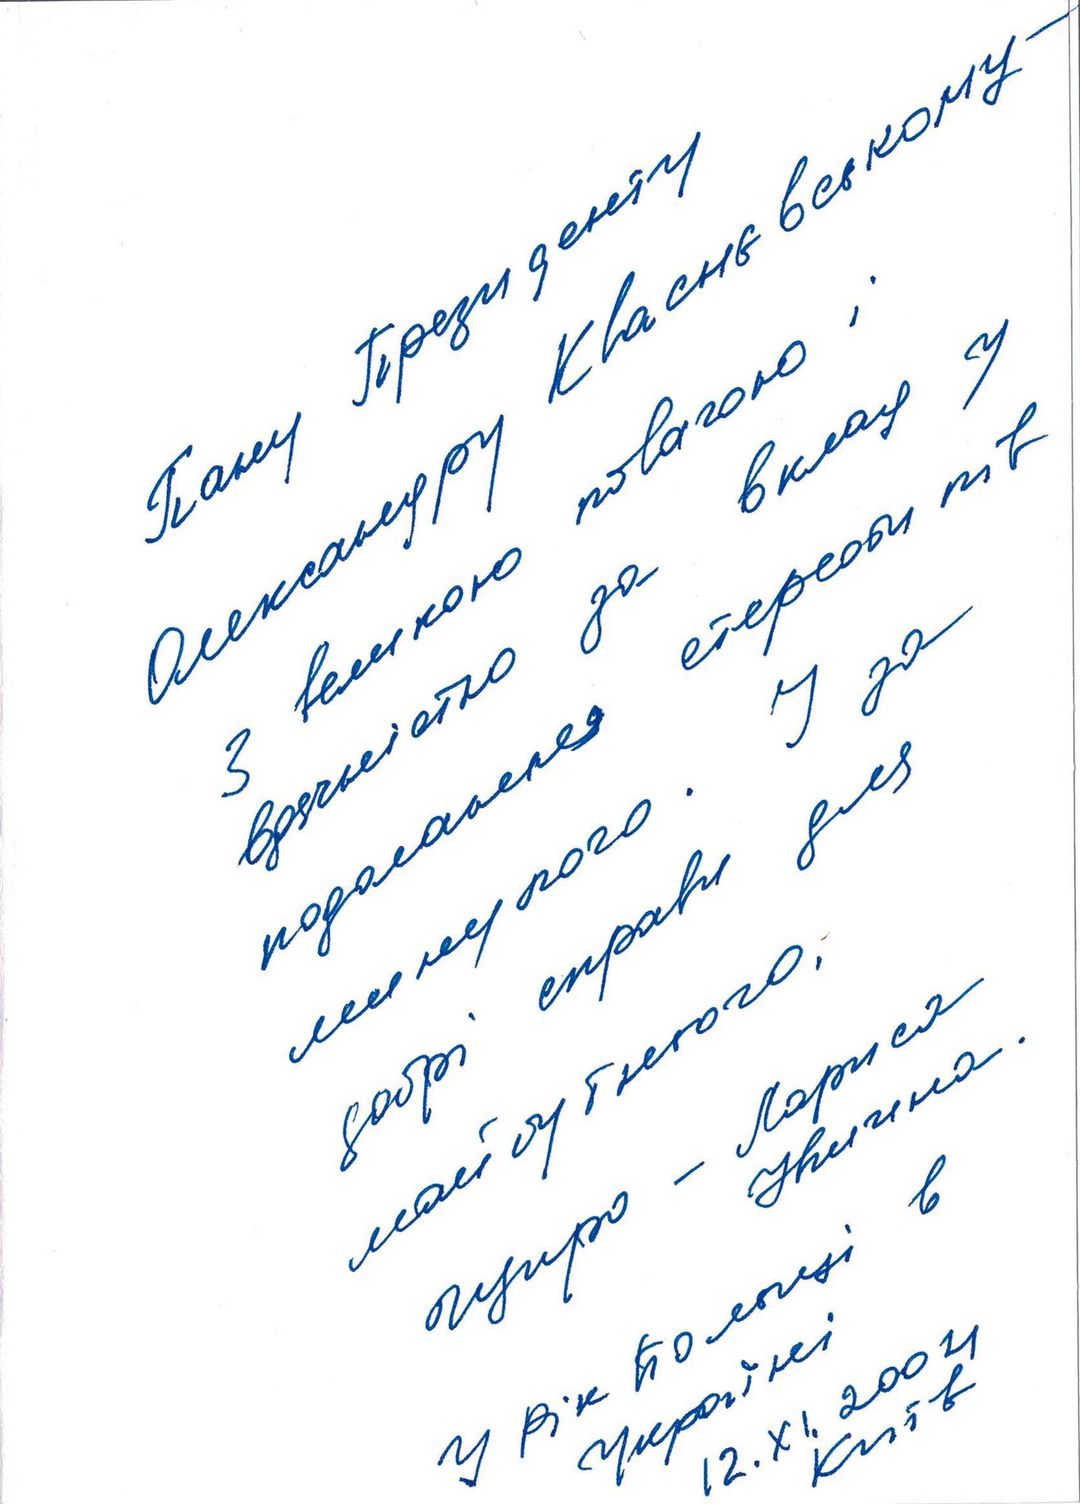 Пану Президенту
Олександру Кваснєвському –
З великою повагою і
вдячністю за вклад у
подолання стереотипів
минулого. У за
добрі справи для
майбутнього,
щиро – Лариса
Івшина.
У рік Польщі в
Україні
12.XI.2004
Київ